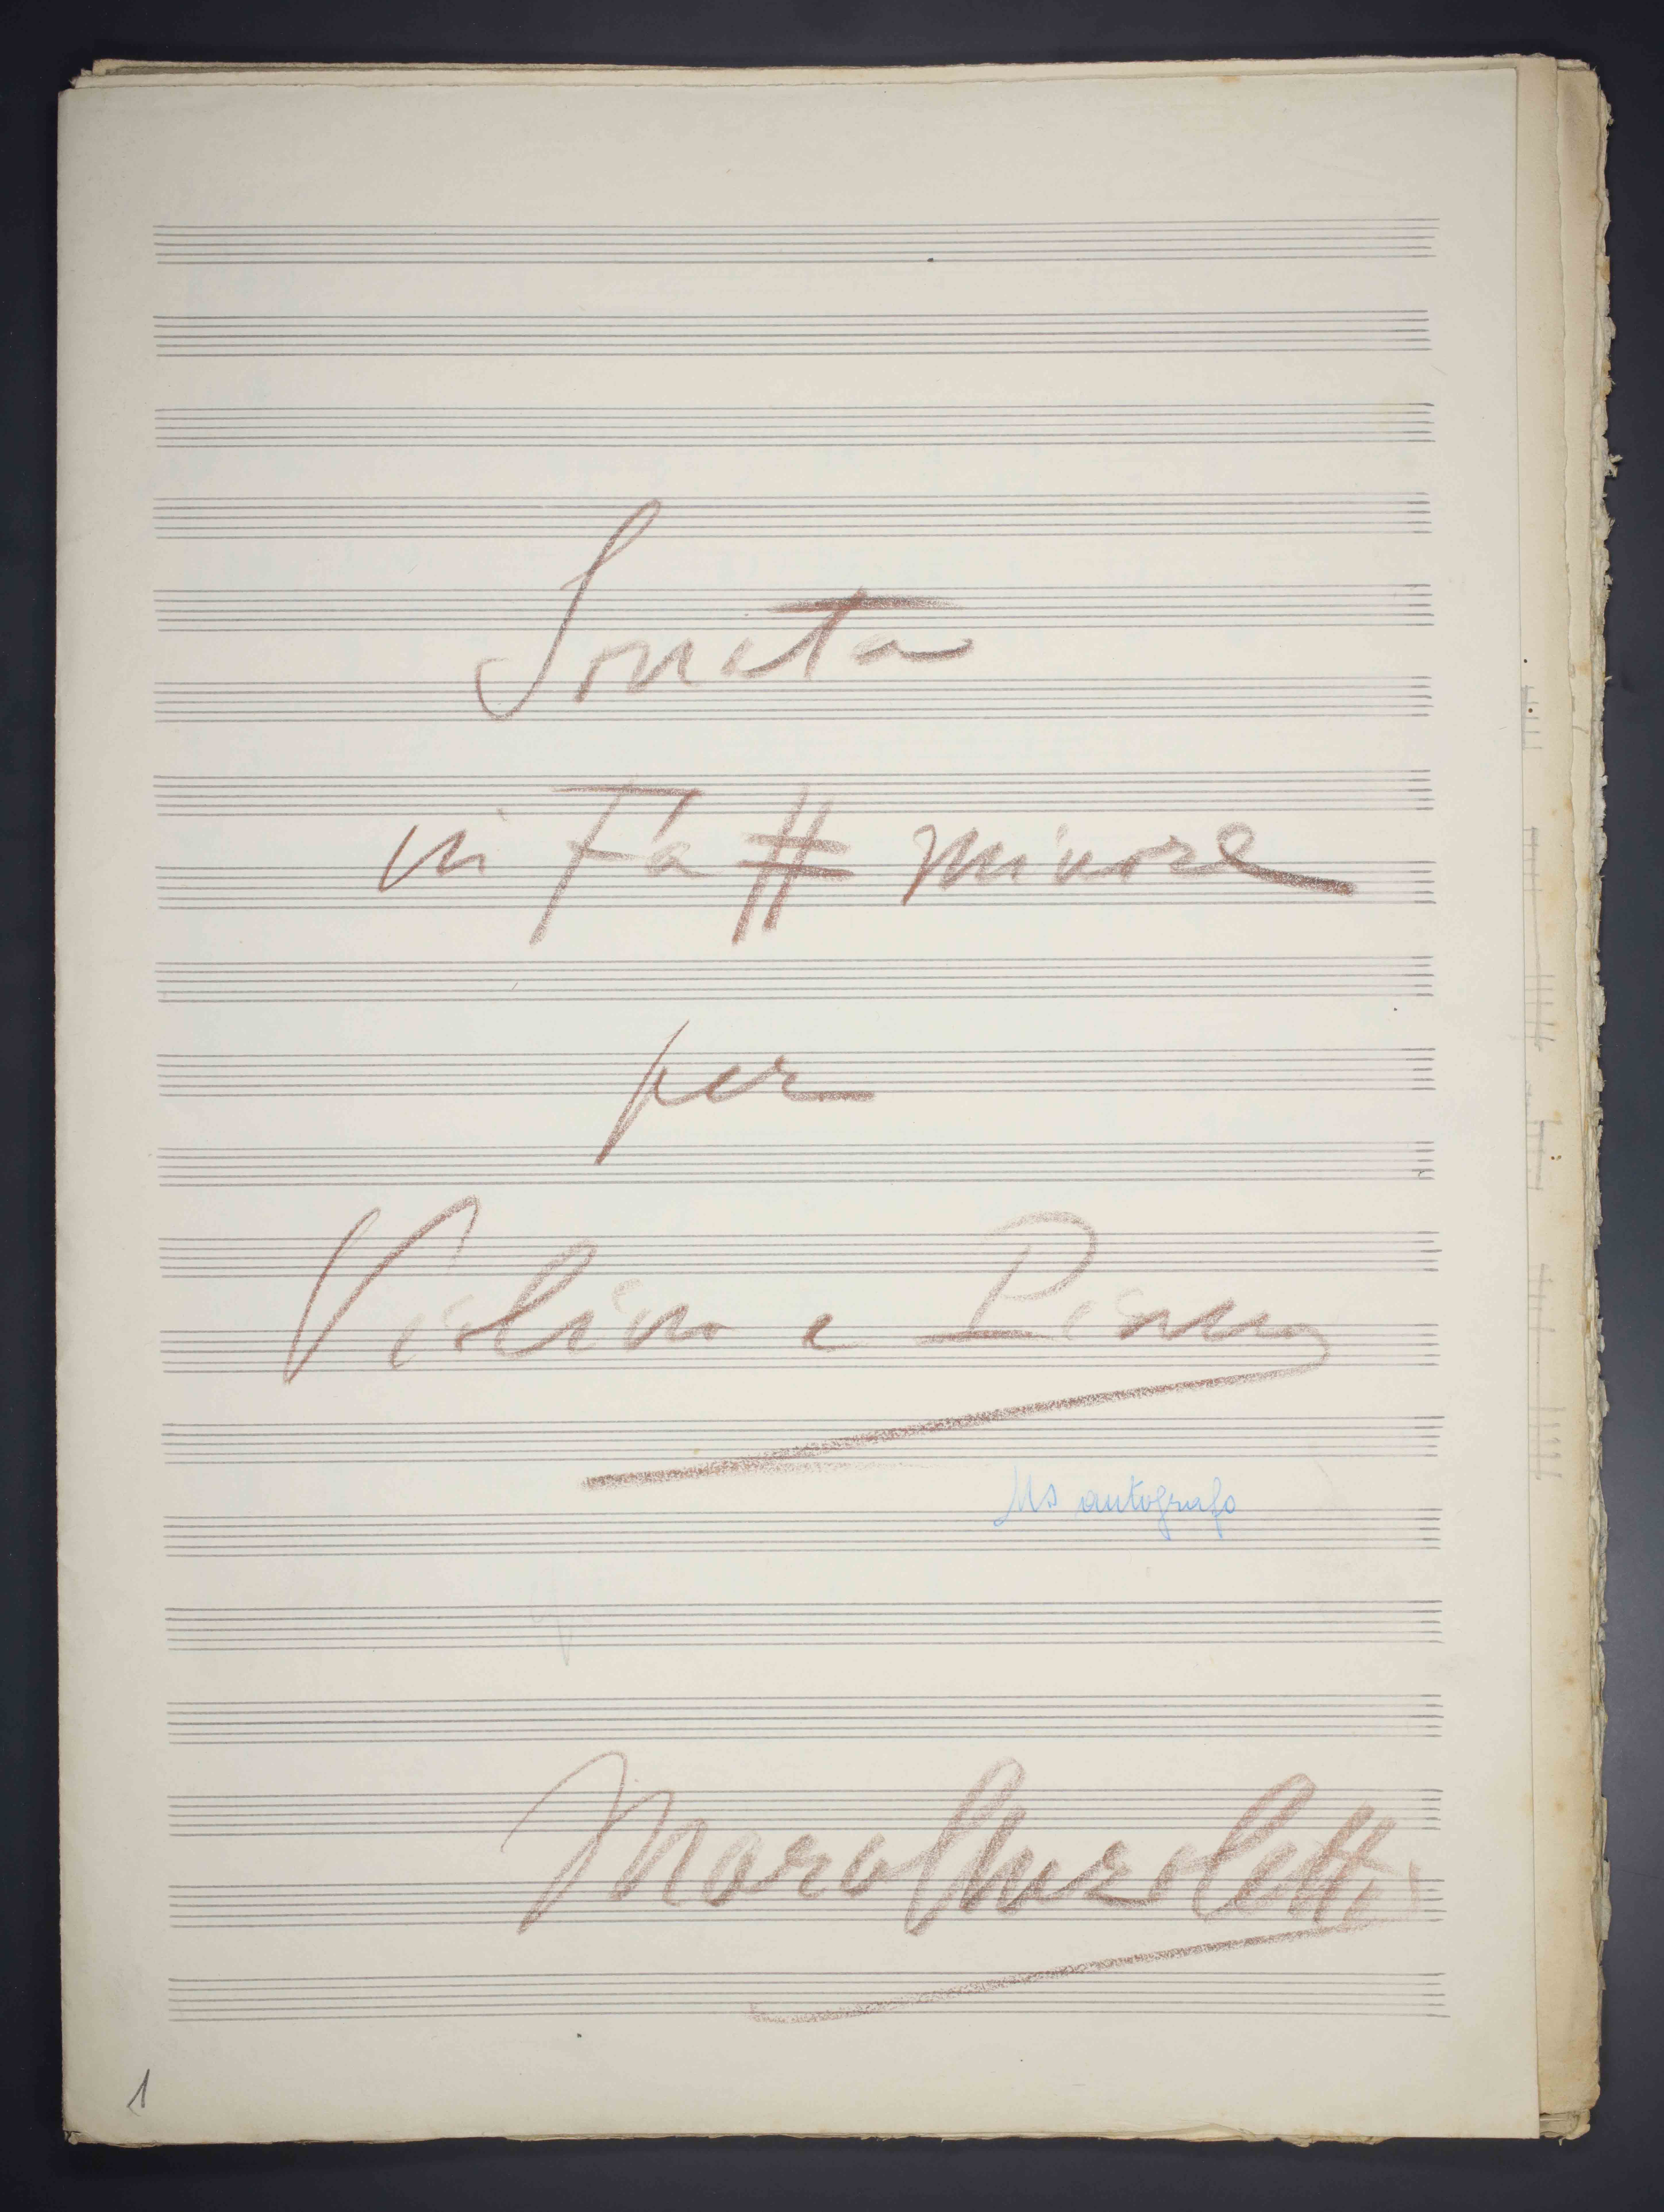 Sonata
in Fa # minore
per
Violino e Piano
Ms autografo
1